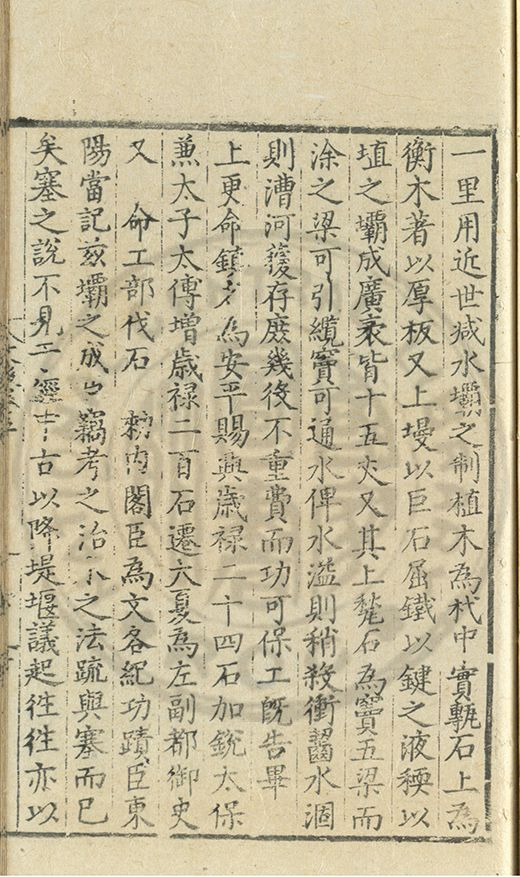 一里用近世减水壩之制植木為杙中實甎石上為
衡木著以厚板又上墁以巨石屈鐵以鍵之液秫以
埴之壩成廣袤皆十五丈又其上甃石為竇五梁而
涂之梁可引纜竇可通水俾水溢則稍殺衝齧水涸
則漕河獲存庶幾後不重費而功可保工既告畢
上更命鎮名為安平賜興歳禄二十四石加銳太保
兼太子太傅增歳禄二百石遷大夏為左副都御史
又　命工部伐石　勑內閣臣為文各紀功蹟臣東
陽當記兹壩之成 竊考之治水之法疏與塞而已
矣塞之說不見于經 古以降堤堰議起徃徃亦以